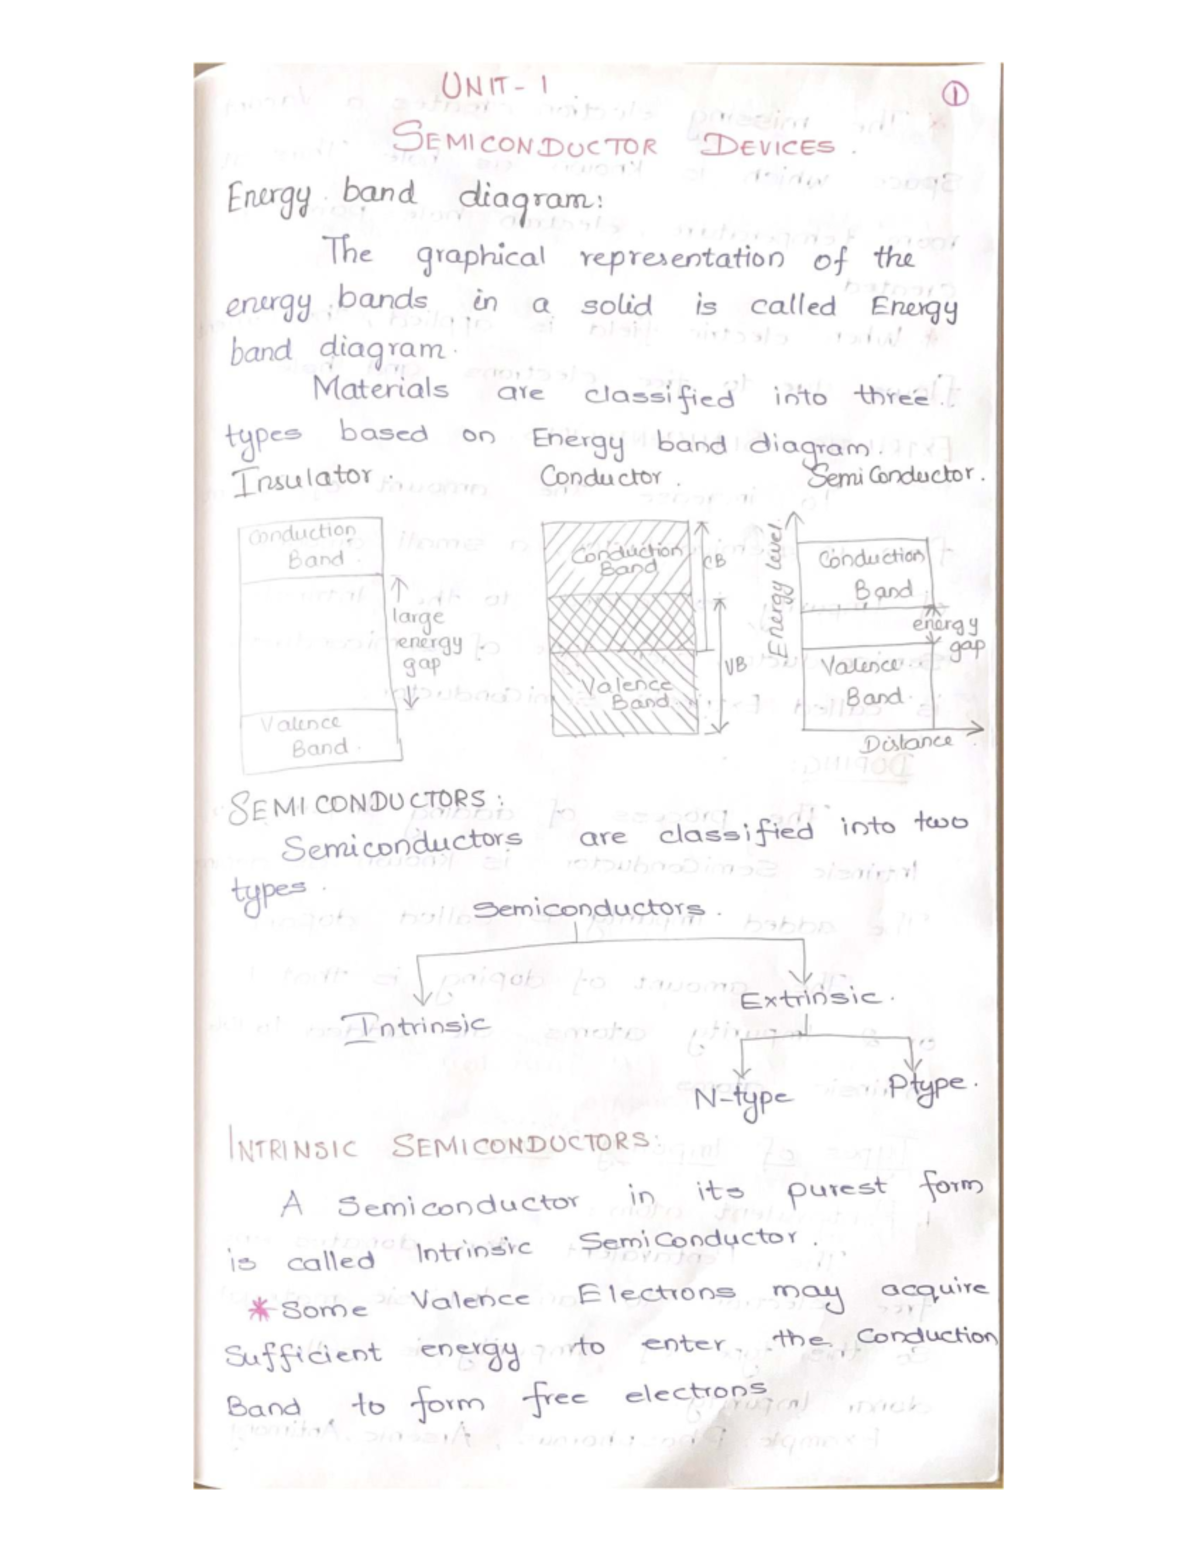 UNIT-1
①
SEMICONDUCTOR DEVICES.
Energy band diagram:
The graphical representation of the
energy bands in a solid is called Energy
band diagram.
Materials are classified into three
types based on Energy band diagram.
Insulator. Conductor. SemiConductor.
Conduction
Band.
large
energy
gap
Valence
Band.
Conduction
Band
CB
Valence
Band
VB
Energy level
Conduction
Band
energy
gap
Valence
Band.
Distance
SEMICONDUCTORS:
Semiconductors are classified into two
types.
Semiconductors.
Intrinsic
Extrinsic.
N-type
Ptype.
INTRINSIC SEMICONDUCTORS:
A Semiconductor in its purest form
is called Intrinsic SemiConductor.
* Some Valence Electrons may acquire
Sufficient energy to enter the Conduction
Band to form free electrons